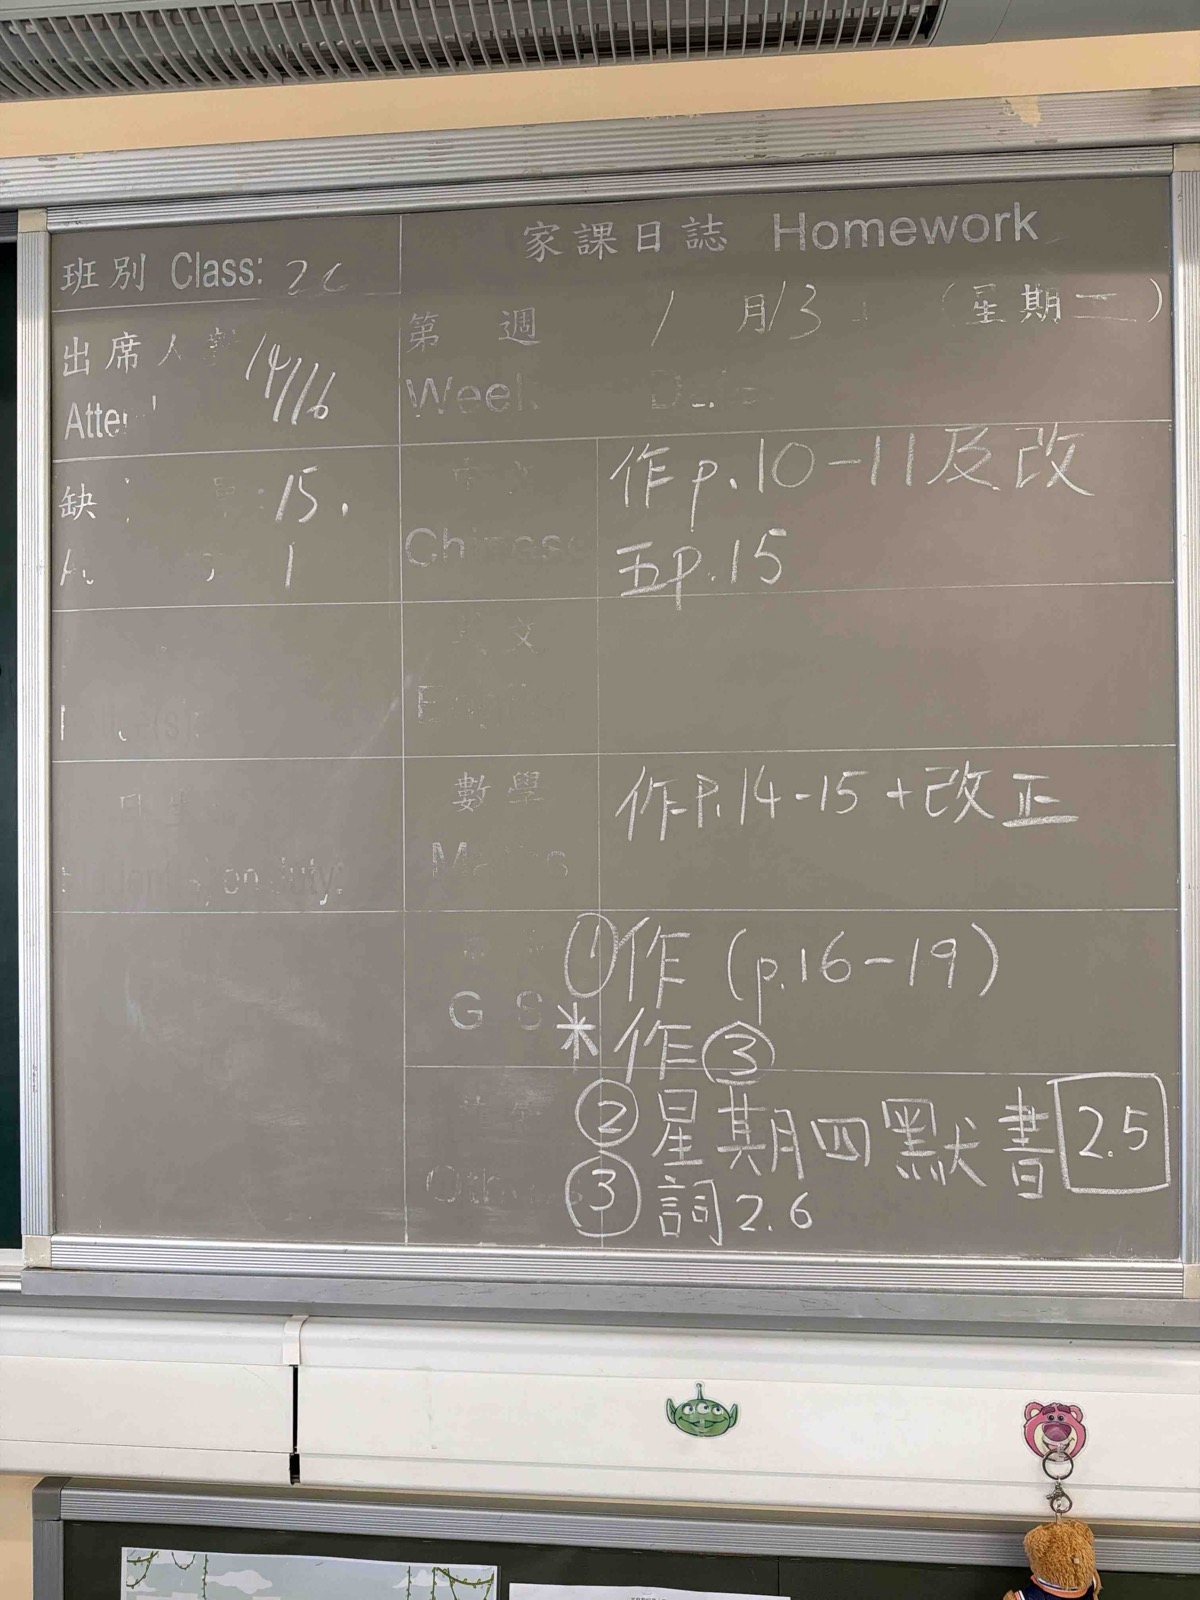 家課日誌 Homework
班別 Class: 2C
第 週 1 月13 (星期二)
Week
出席人數 14/16
缺 15.
1
Chinese 作p.10-11及改
五p.15
文
數學 作P.14-15+改正
Maths
G S ①作 (p.16-19)
*作③
②星期四默書 2.5
Others ③詞2.6
on duty: